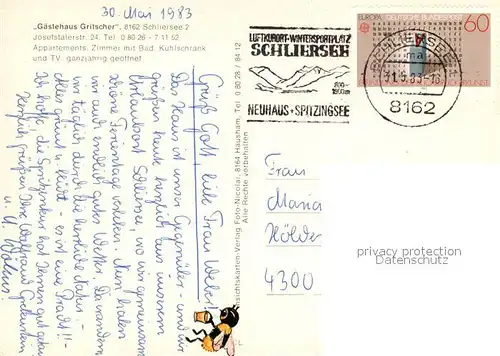 30. Mai 1983
„Gästehaus Gritscher“, 8162 Schliersee 2
Josefstalerstr. 24, Tel. 0 80 26 - 7 11 52
Appartements, Zimmer mit Bad, Kühlschrank
und TV, ganzjährig geöffnet
Grüß Gott, liebe Frau
Das Haus ist unser Gegenüber - und wir
grüßen heute herzlich aus unserem
Urlaubsort wo wir gemeinsam
schöne Ferientage verleben. Nun haben
wir auch endlich gutes Wetter. Da wandern
wir täglich durch die herrliche Natur -
alles grünt u. blüht - es ist eine Pracht!!
Ich hoffe, die hat Ihnen gut getan.
Herzlich grüßen Ihre
u. H.
Ansichtskarten-Verlag Foto-Nicolai, 8164 Hausham, Tel. 0 80 26 / 84 12
Alle Rechte vorbehalten
LUFTKURORT-WINTERSPORTPLATZ
SCHLIERSEE
800-
NEUHAUS + SPITZINGSEE
EUROPA DEUTSCHE BUNDESPOST
60
31.5.83
8162
Frau
Maria
Hölder
4300
privacy protection
Datenschutz